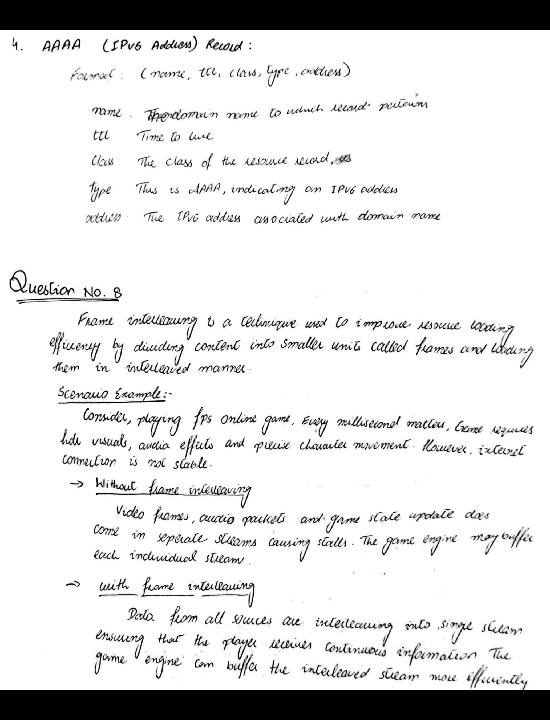 4. AAAA (IPv6 Address) Record:
Format: (name, ttl, class, type, address)
name. The domain name to which record pertains
ttl Time to live
Class The class of the resource record,
Type This is AAAA, indicating an IPv6 address
address The IPv6 address associated with domain name
Question No. 8
Frame interleaving is a technique used to improve resource loading
efficiency by dividing content into smaller units called frames and loading
them in interleaved manner.
Scenario Example:-
Consider, playing fps online game, Every millisecond matters, Game requires
hdr visuals, audio effects and precise character movement. However, internet
connection is not stable.
→ Without frame interleaving
Video frames, audio packets and game state update does
come in seperate streams causing stalls. The game engine may buffer
each individual stream.
→ with frame interleaving
Data from all sources are interleaving into single stream
ensuring that the player receives continuous information The
game engine can buffer the interleaved stream more efficiently